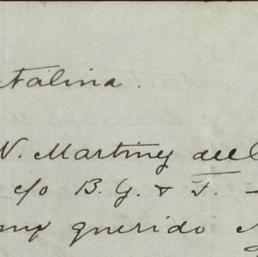 talina.
N. Martinez del
c/o B. G. & F. -
my querido